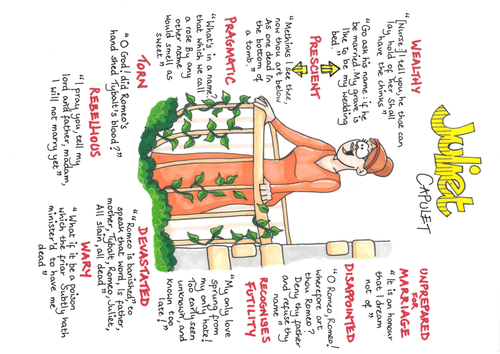 Juliet
CAPULET
WEALTHY
"[Nurse] I tell you, he that can
lay hold of her shall
have the chinks"
"Go ask his name: if he
be married My grave is
like to be my wedding
bed."
PRESCIENT
"Methinks I see thee,
now thou art below
As one dead in
the bottom of
a tomb."
PRAGMATIC
"What's in a name?
that which we call
a rose By any
other name
would smell as
sweet"
TORN
"O God! did Romeo's
hand shed Tybalt's blood?"
REBELLIOUS
"I pray you, tell my
lord and father, madam,
I will not marry yet"
UNPREPARED
FOR
MARRIAGE
"It is an honour
that I dream
not of"
DISAPPOINTED
"O Romeo, Romeo!
wherefore art
thou Romeo?
Deny thy father
and refuse thy
name"
RECOGNISES
FUTILITY
"My only love
sprung from
my only hate!
Too early seen
unknown, and
known too
late!"
DEVASTATED
"'Romeo is banished,' to
speak that word, is father,
mother, Tybalt, Romeo, Juliet,
All slain, all dead"
WARY
"What if it be a poison
which the friar Subtly hath
minister'd to have me
dead"